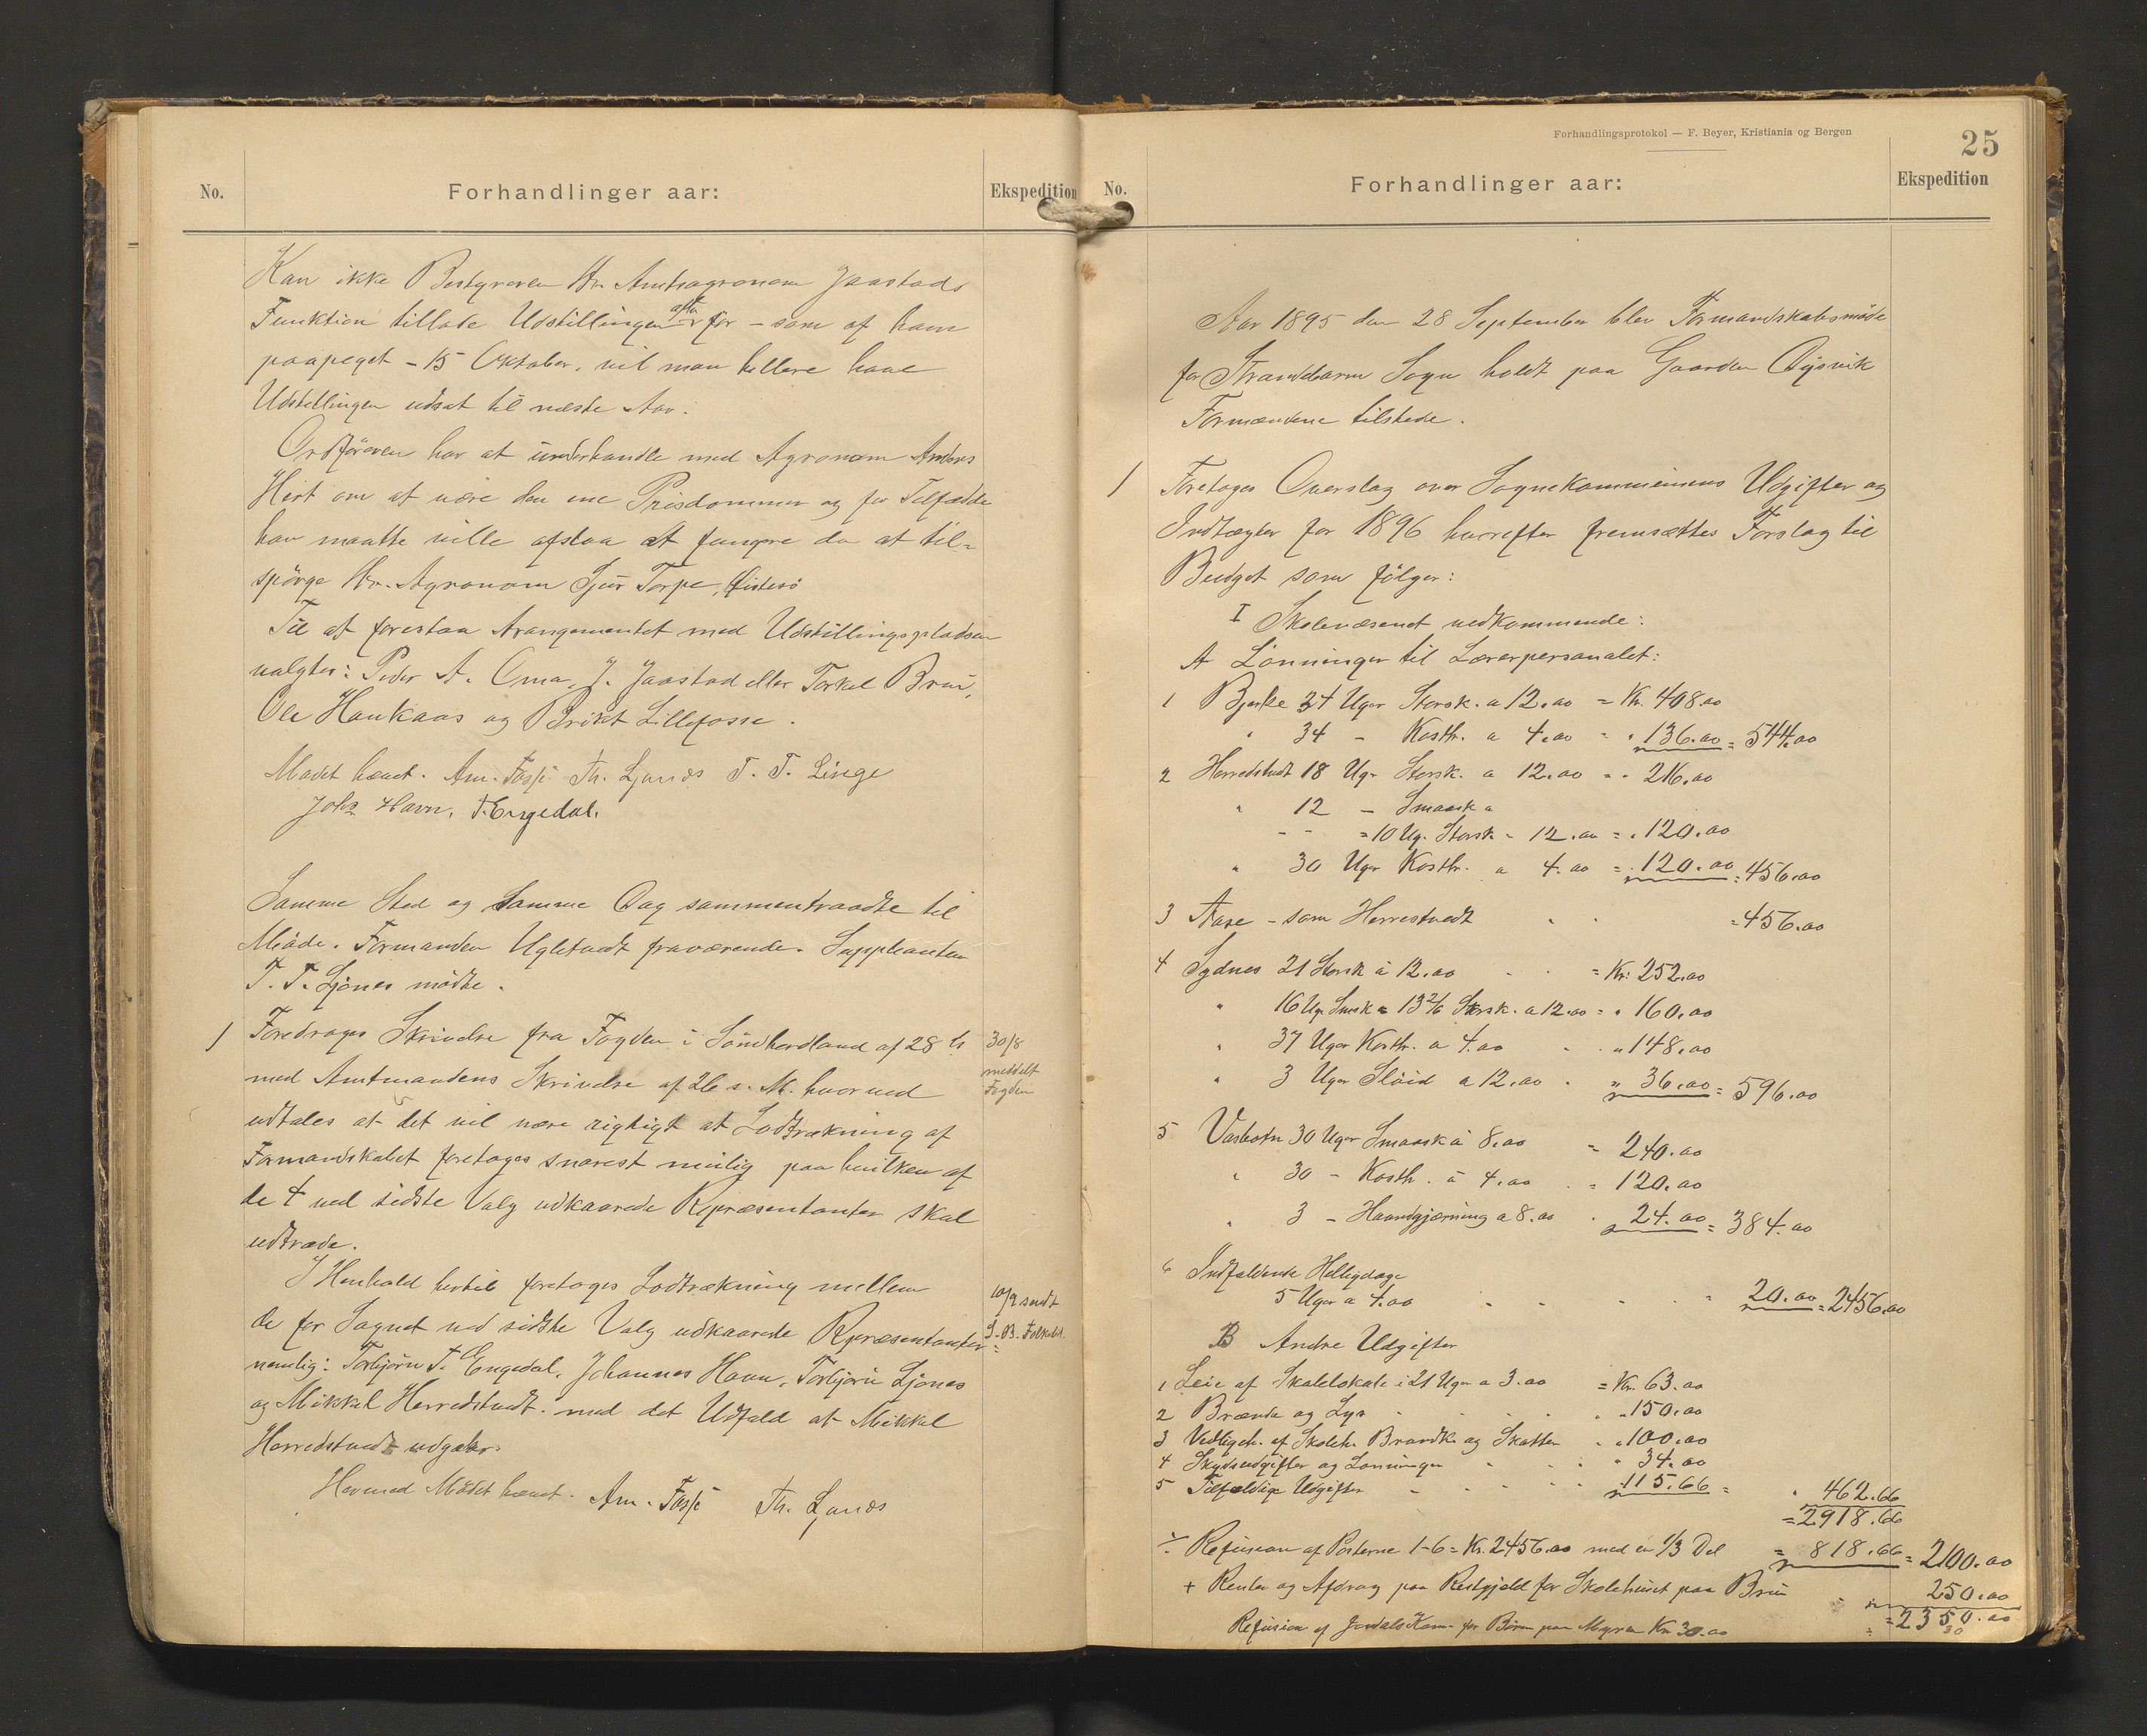 No.
Forhandlinger aar:
Ekspedition
Kan ikke Bestyreren Hr. Amtsagronom Jaastads
Funktion tillade Udstillingen før - som af ham
paapeget - 15 Oktober, vil man hellere have
Udstillingen udsat til næste Aar.
Ordføreren har at underhandle med Agronom Anders
om at være den ene Prisdommer og for Tilfælde
han maatte ville afslaa at fungere da at til-
spørge Hr. Agronom Sjur Torpe,
Til at forestaa Arangementet med Udstillingspladsen
valgtes: Peder A. Oma, J. Jaastad eller Torkel Bru,
Ole Haukaas og Brikt Lillefosse.
Mødet hævet. Am. Fosse Th. Ljones T. T. Linge
Johs Havn, T. Engedal.
Samme Sted og Samme Dag sammentraadte til
Møde. Formanden Ugletvedt fraværende. Suppleanten
T. T. Ljones mødte.
1 Foredroges Skrivelse fra Fogden i Söndhordland af 28 ds
med Amtmandens Skrivelse af 26 s. M. hvorved
udtales at det vil være rigtigt at Lodtrækning af
Formandskabet foretages snarest mulig paa hvilken af
de 4 ved sidste Valg udkaarede Repræsentanter skal
udtræde.
30/8
meddelt
Fogden
I Henhold hertil foretoges Lodtrækning mellem
de for Sognet ved sidste Valg udkaarede Repræsentanter
nemlig: Torbjørn T. Engedal, Johannes Havn, Torbjørn Ljones
og Mikkel Herredstvedt. med det Udfald at Mikkel
Herredstvedt udgaar.
10/9 sendt
Hermed Mødet hævet. Am. Fosse Th. Ljones
Forhandlingsprotokol — F. Beyer, Kristiania og Bergen
25
No.
Forhandlinger aar:
Ekspedition
Aar 1895 den 28 September blev Formandskabsmöde
for Strandebarm Sogn holdt paa Gaarden Digsvik
Formændene tilstede.
1 Foretoges Overslag over Sognekommunens Udgifter og
Indtægter for 1896 hvorefter fremsættes Forslag til
Budget som følger:
I Skolevæsenet vedkommende:
A Lönninger til Lærerpersonalet:
1 Bjerke 34 Uger Storsk. a 12.00 = Kr. 408.00
" 34 - Kosth. a 4.00 = " 136.00 = 544.00
2 Herredstvedt 18 Uger Storsk. a 12.00 = " 216.00
" 12 - Smaask a
- - = 10 Ug. Storsk - 12.00 = " 120.00
" 30 Uger Kosth. a 4.00 = " 120.00 = 456.00
3 Aase - som Herrestvedt = 456.00
4 Sydnes 21 Storsk á 12.00 = Kr: 252.00
" 16 Ug. Smsk = 13 2/6 Storsk. a 12.00 = " 160.00
" 37 Uger Kosth. a 4.00 " 148.00
" 3 Uger Slöid a 12.00 " 36.00 = 596.00
5 Vasbotn 30 Uger Smaask á 8.00 = 240.00
" 30 - Kosth. á 4.00 = 120.00
" 3 - Haandgjærning a 8.00 24.00 = 384.00
6 Indfaldende Helligdage
5 Uger a 4.00 20.00 = 2456.00
B Andre Udgifter
1 Leie af Skolelokale i 21 Uger a 3.00 = Kr. 63.00
2 Brænde og Lys " 150.00
3 Vedligeh. af Skoleh. Brandk. og Skatter " 100.00
4 Skydsudgifter og Lønninger " 34.00
5 Tilfældige Udgifter 115.66 = " 462.66
= 2918.66
÷ Refusion af Posterne 1-6 = Kr. 2456.00 med en 1/3 Del = 818.66 = 2100.00
+ Renter og Afdrag paa Restgjæld for Skolehuset paa Bru 250.00
= 2350.00
Refusion af Jondals Kom. for Börn paa Myren Kr 30.00
30